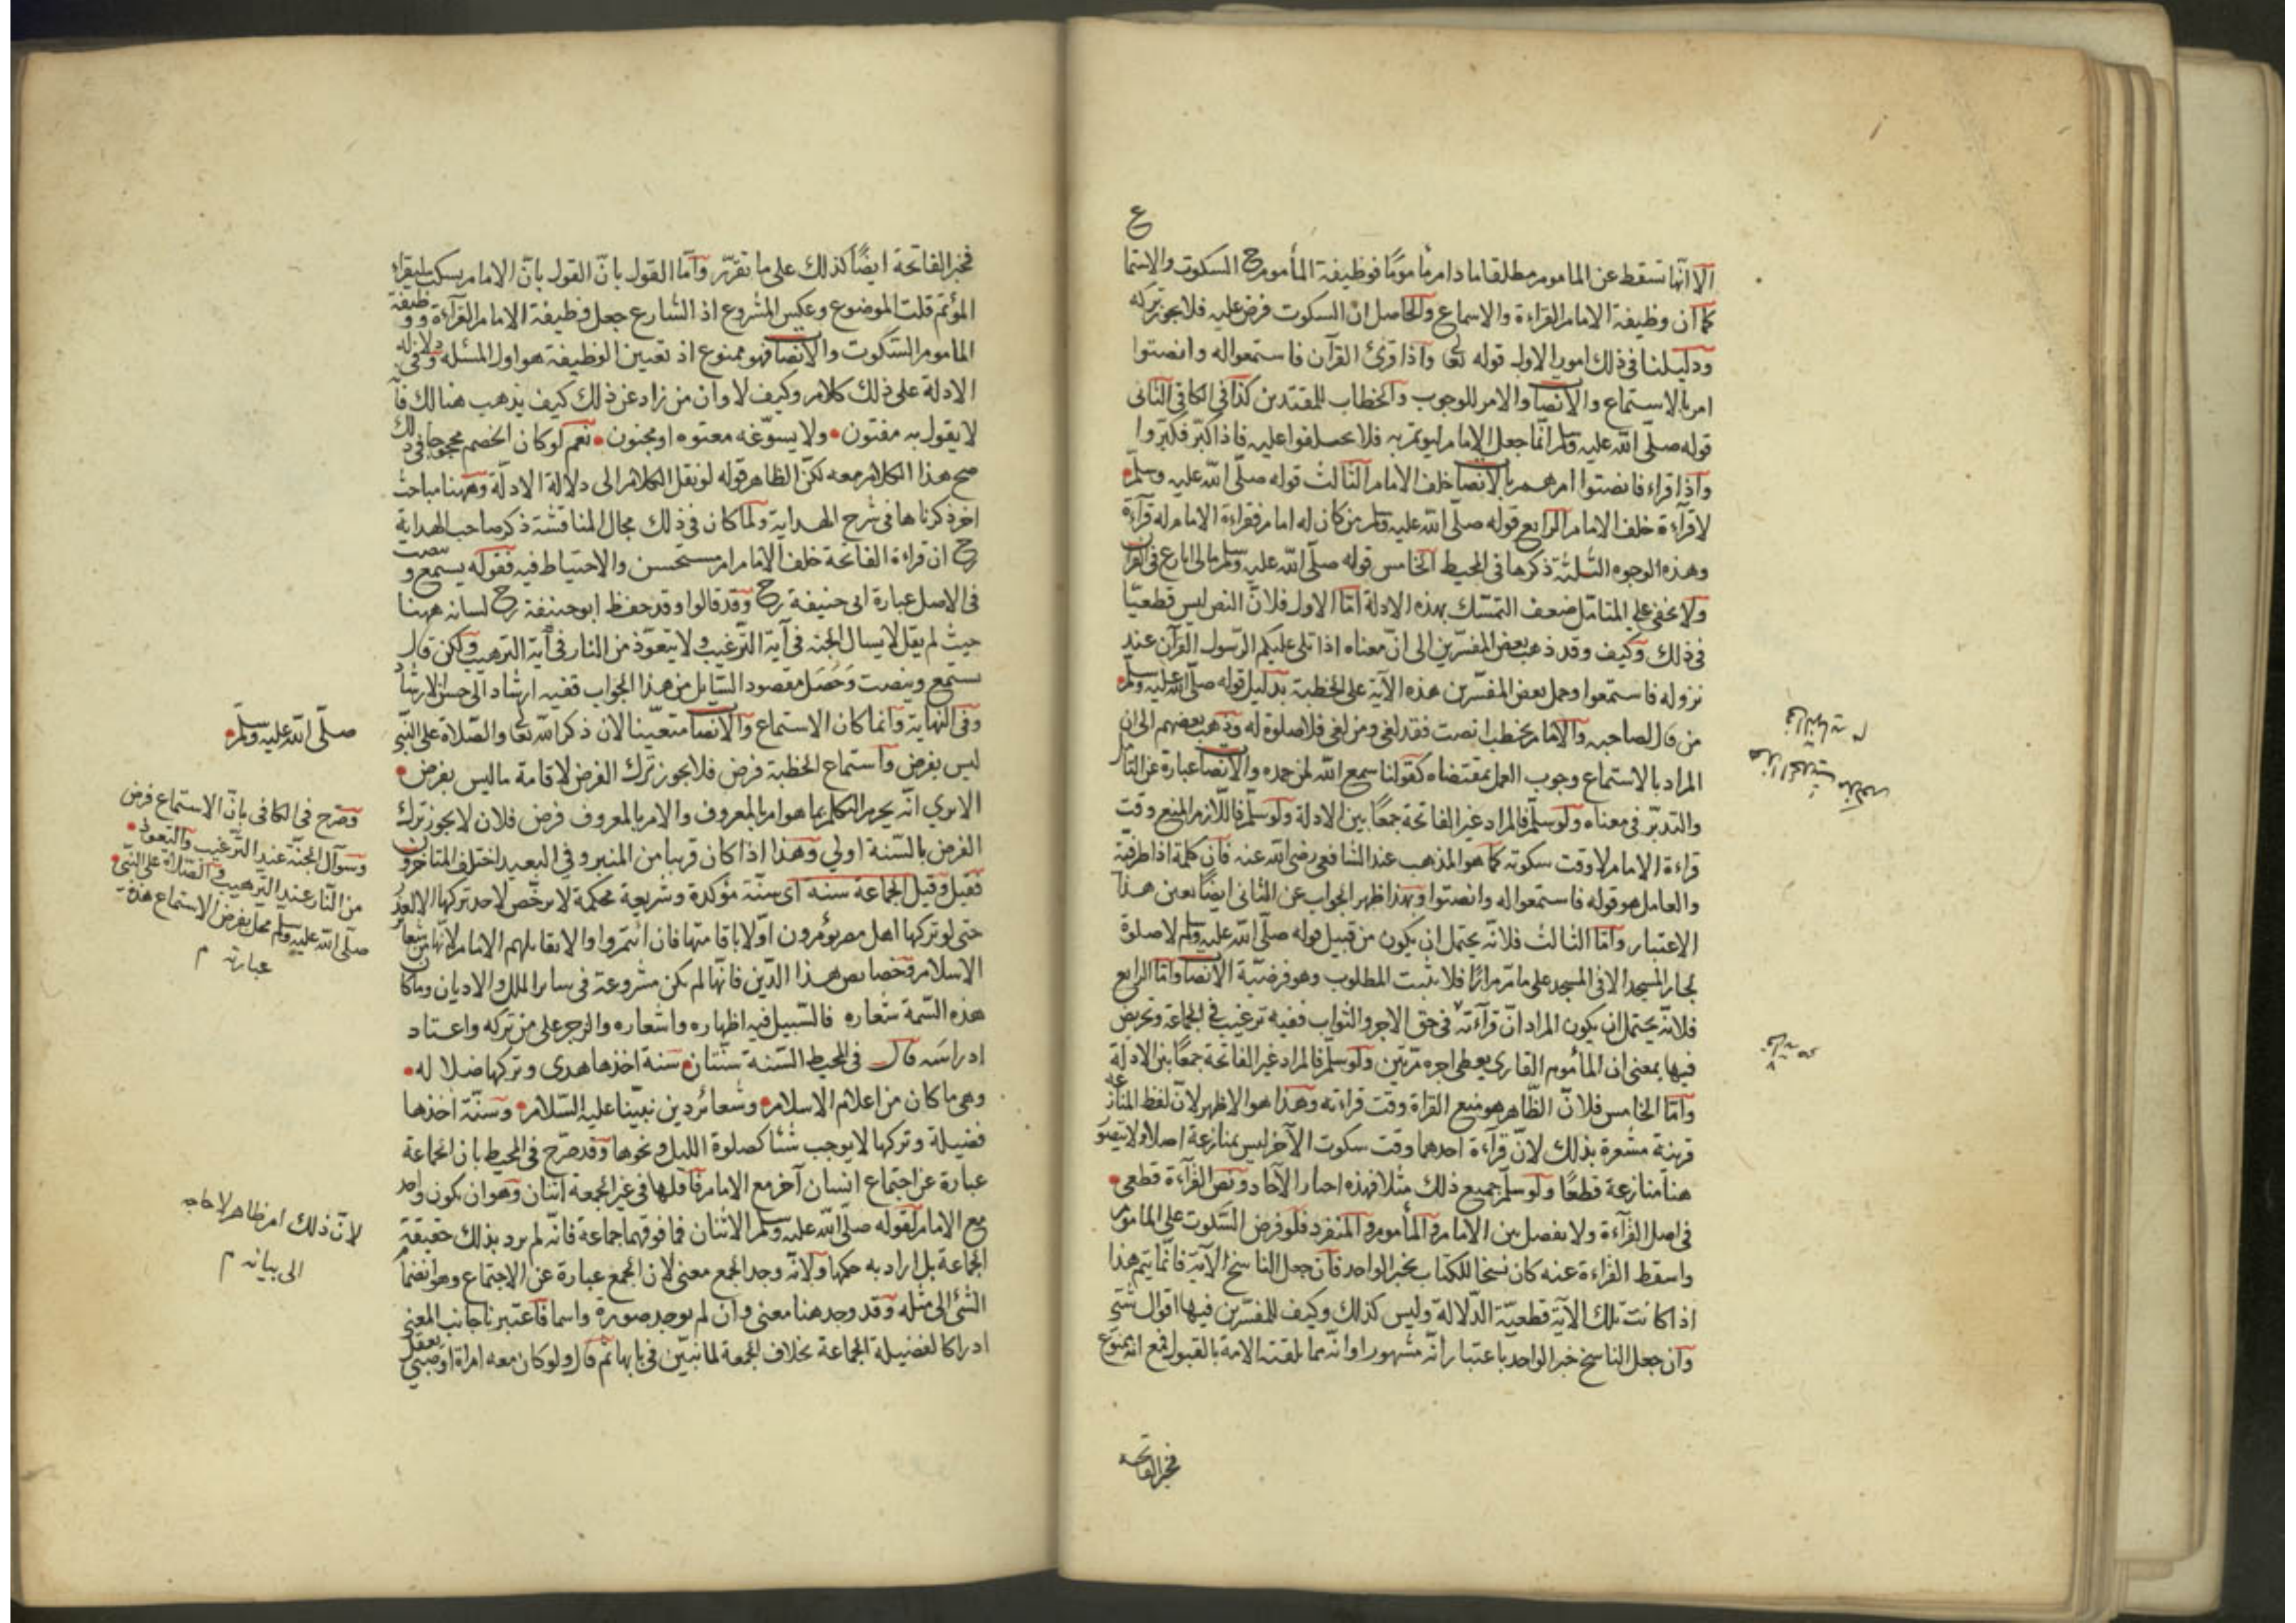 الا انها تسقط عن الماموم مطلقا ما دام مأمومًا فوظيفة المأموم ح السكوت والاستماع
كما ان وظيفة الامام القراءة والاسماع والحاصل ان السكوت فرض عليه فلا يجوز تركه
ودليلنا فى ذلك امور الاول قوله تعا واذا قرئ القرآن فاستمعوا له وانصتوا
امر بالاستماع والانصات والامر للوجوب والخطاب للمقتدين كذا فى الكافى الثانى
قوله صلّى الله عليه وسلم انما جعل الامام ليؤتم به فلا تختلفوا عليه فاذا كبّر فكبّروا
واذا قراء فانصتوا امرهم بالانصات خلف الامام الثالث قوله صلّى الله عليه وسلّم
لا قرآءة خلف الامام الرابع قوله صلّى الله عليه وسلم من كان له امام فقراءة الامام له قرآءة
وهذه الوجوه الثلثة ذكرها فى المحيط الخامس قوله صلّى الله عليه وسلم مالى انازع فى القرآن
ولا يخفى على المتامّل ضعف التمسّك بهذه الادلة امّا الاول فلانّ النص ليس قطعيّا
فى ذلك وكيف وقد ذهب بعض المفسّرين الى انّ معناه اذا تلى عليكم الرّسول القرآن عند
نزوله فاستمعوا وحمل بعض المفسّرين هذه الآية على الخطبة بدليل قوله صلّى الله عليه وسلّم
من قال لصاحبه والامام يخطب انصت فقد لغى ومن لغى فلا صلوة له وذهب بعضهم الى ان
المراد بالاستماع وجوب العمل بمقتضاه كقولنا سمع الله لمن حمده والانصات عبارة عن التأمّل
والتدبّر فى معناه ولو سلّم فالمراد غير الفاتحة جمعًا بين الادلة ولو سلّم فاللازم المنع وقت
قراءة الامام لا وقت سكوته كما هو المذهب عند الشافعى رضى الله عنه فان كلمة اذا ظرفيّة
والعامل هو قوله فاستمعوا له وانصتوا وبهذا ظهر الجواب عن الثانى ايضًا بعين هذا
الاعتبار وامّا الثالث فلانّه يحتمل ان يكون من قبيل قوله صلّى الله عليه وسلم لا صلوة
لجار المسجد الا فى المسجد على ما مرّ مرارًا فلا يثبت المطلوب وهو فرضيّة الانصات وامّا الرابع
فلانّه يحتمل ان يكون المراد انّ قرآءته فى حق الاجر والثواب ففيه ترغيب فى الجماعة وتحريض
فيها بمعنى ان المأموم القارى يعطى اجره مرّتين ولو سلّم فالمراد غير الفاتحة جمعًا بين الادلة
وامّا الخامس فلانّ الظّاهر هو منع القراة وقت قراءته وهذا هو الاظهر لانّ لفظ المنازعة
قرينة مشعرة بذلك لانّ قرآءة احدهما وقت سكوت الآخر ليس بمنازعة اصلا ولا يتصوّر
هنا منازعة قطعًا ولو سلّم جميع ذلك مثلا فهذه اخبار الآحاد ونص القرآءة قطعى
فى اصل القرآءة ولا يفصل بين الامام والمأموم والمنفرد فلو فرض السّكوت على الماموم
واسقط القراءة عنه كان نسخا للكتاب بخبر الواحد فان جعل الناسخ الآية فانّما يتم هذا
اذا كانت تلك الآية قطعيّة الدّلالة وليس كذلك وكيف للمفسّرين فيها اقوال شتّى
وان جعل الناسخ خبر الواحد باعتبار انّه مشهور او انّه مما تلقته الامة بالقبول فمع انه ممنوع
فخبر الفاتحة
فخبر الفاتحة ايضًا كذلك على ما تقرّر وامّا القول بانّ القول بانّ الامام يسكت ليقراء
المؤتم قلت الموضوع وعكس المشروع اذ الشارع جعل وظيفة الامام القرآءة ووظيفة
الماموم السّكوت والانصات فهو ممنوع اذ تعيين الوظيفة هو اول المسئله وفى دلالة
الادلة على ذلك كلام وكيف لا وان من زاد عن ذلك كيف يذهب هنالك
لا يقول به مفتون ولا يسوّغه معتوه او مجنون نعم لو كان الخصم محجوجا فى ذلك
صح هذا الكلام معه لكن الظاهر قوله لو نقل الكلام الى دلالة الادلّة وههنا مباحث
اخر ذكرناها فى شرح الهداية ولما كان فى ذلك مجال المناقشة ذكر صاحب الهداية
رح ان قراءة الفاتحة خلف الامام امر مستحسن والاحتياط فيه فقوله يستمع وينصت
فى الاصل عبارة ابى حنيفة رح وقد قالوا وقد حفظ ابو حنيفة رح لسانه ههنا
حيث لم يقل لا يسال الجنة فى آية الترغيب ولا يتعوّذ من النار فى آية الترهيب ولكن قال
يستمع وينصت وحصل مقصود السّايل من هذا الجواب ففيه ارشاد الى حسن الارشاد
وفى النهاية وانما كان الاستماع والانصات متعيّنا لان ذكر الله تعا والصّلاة على النّبى
صلّى الله عليه وسلّم
ليس بفرض واستماع الخطبة فرض فلا يجوز ترك الفرض لاقامة ما ليس بفرض
الا يرى انّه يحرم التكلم بما هو امر بالمعروف والامر بالمعروف فرض فلان لا يجوز ترك
الفرض بالسّنة اولى وهذا اذا كان قريبا من المنبر وفى البعيد اختلف المتاخرون
وصرّح فى الكافى بانّ الاستماع فرض
وسوآل الجنّة عند التّرغيب والتعوّذ
من النّار عند الترهيب والصّلاة على النّبى
صلّى الله عليه وسلم مخل بفرض الاستماع هذه
عبارته م
فقيل وقيل الجماعة سنة اى سنّة مؤكدة وشريعة محكمة لا يرخّص لاحد تركها الا لعذر
حتى لو تركها اهل مصر يؤمرون اوّلا باقامتها فان ائتمروا والا يقاتلهم الامام لانّها من شعائر
الاسلام وخصايص هذا الدّين فانّها لم يكن مشروعة فى سائر الملل والاديان وما كان
هذه السّمة شعاره فالسّبيل فيه اظهاره واشعاره والزجر على من تركه واعتاد
ادراسه قال فى المحيط السّنة سنّتان سنة اخذها هدى وتركها ضلاله
وهى ما كان من اعلام الاسلام وشعائر دين نبيّنا عليه السّلام وسنّة اخذها
فضيلة وتركها لا يوجب شيئا كصلوة الليل ونحوها وقد صرّح فى المحيط بان الجماعة
عبارة عن اجتماع انسان آخر مع الامام فاقلها فى غير الجمعة اثنان وهو ان يكون واحد
لانّ ذلك امر ظاهر لا حاجه
الى بيانه م
مع الامام لقوله صلّى الله عليه وسلم الاثنان فما فوقهما جماعة فانّه لم يرد بذلك حقيقة
الجماعة بل اراد به حكمها ولانّه وجد الجمع معنى لان الجمع عبارة عن الاجتماع وهو انضمام
الشئ الى مثله وقد وجد هنا معنى وان لم يوجد صورة واسما فاعتبرنا جانب المعنى
ادراكا لفضيلة الجماعة بخلاف الجمعة لما نبيّن فى بابها ثم قال ولو كان معه امراة او صبى يعقل